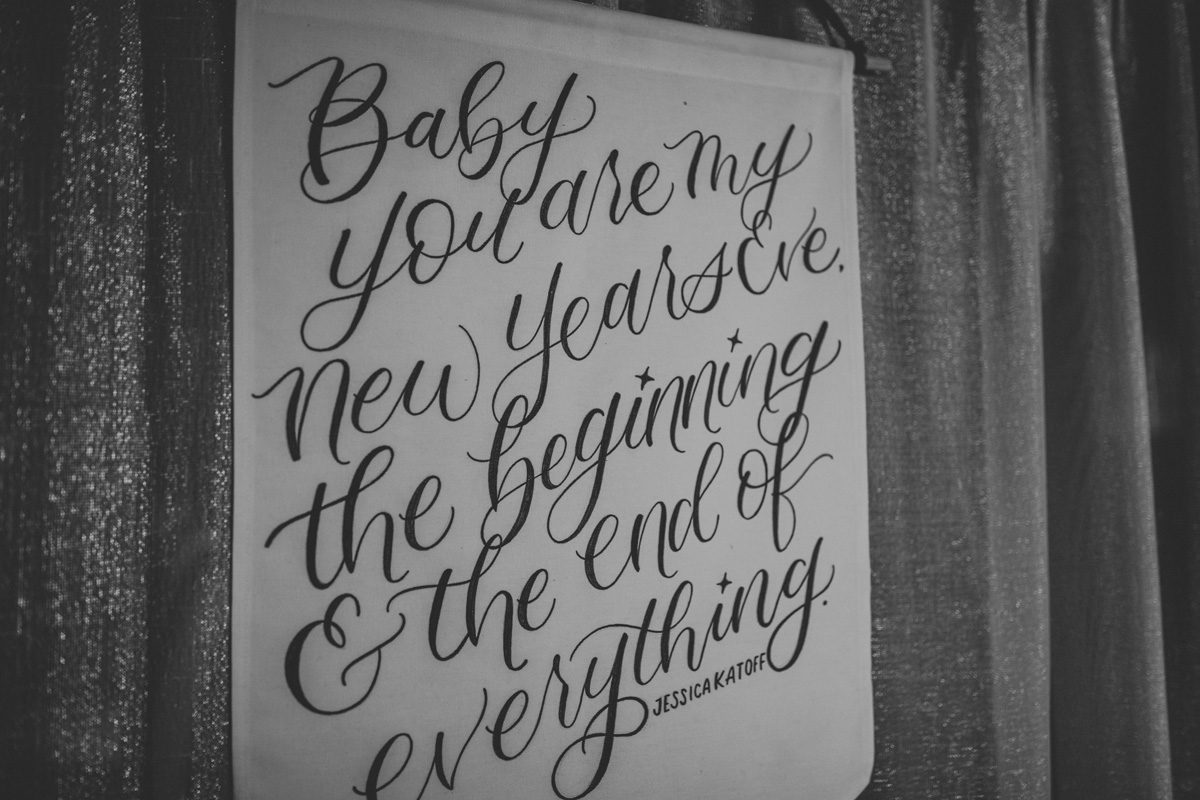 Baby
you are my
new years Eve.
the beginning
& the end of
everything.
JESSICA KATOFF